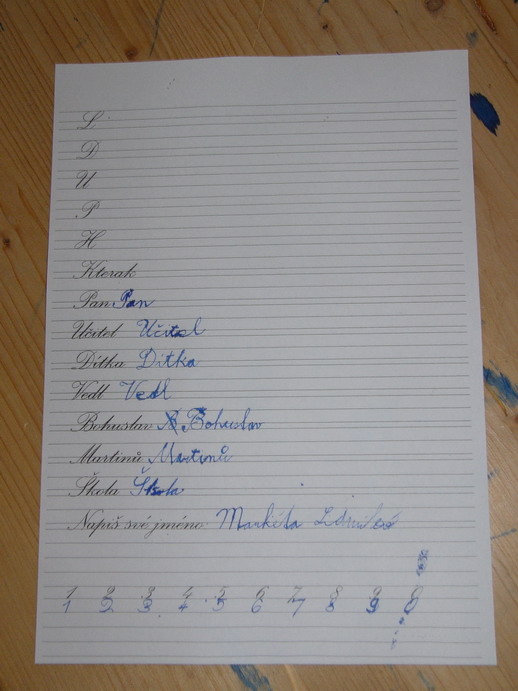 L
D
U
P
H
Kterak
Pan Pan
Učitel Učitel
Dítka Ditka
Vedl Vedl
Bohuslav B Bohuslav
Martinů Martinů
Škola Škola
Napiš své jméno: Markéta
1 2 3 4 5 6 7 8 9 0
1 2 3 4 5 6 7 8 9 0